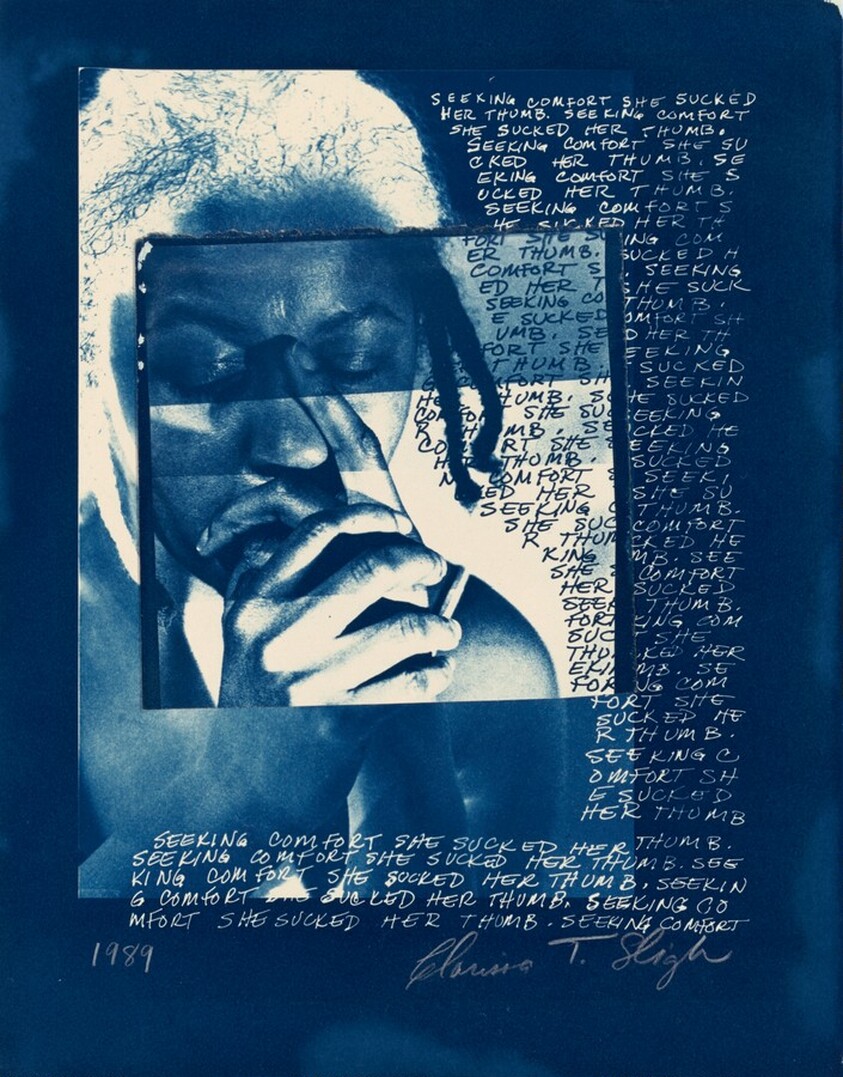 SEEKING COMFORT SHE SUCKED
HER THUMB. SEEKING COMFORT
SHE SUCKED HER THUMB.
SEEKING COMFORT SHE SU
CKED HER THUMB. SE
EKING COMFORT SHE S
UCKED HER THUMB.
SEEKING COMFORT S
HE SUCKED HER TH
FORT SHE SU ING COM
ER THUMB. SUCKED H
COMFORT S SEEKING
ED HER T SHE SUCK
SEEKING CO THUMB.
E SUCKED OMFORT SH
UMB. SE D HER TH
FORT SHE EEKING
THUMB SUCKED
G COMFORT SH SEEKIN
HE THUMB. S HE SUCKED
COMFO SHE SUC EEKING
R TH MB. SE CKED HE
CO RT SHE EEKING
HER THOMB. SUCKED
N COMFORT S SEEKI
KED HER SHE SU
SEEKING C THUMB.
SHE SUC COMFORT
R THUM CKED HE
KING MB. SEE
SHE COMFORT
HER SUCKED
SEEK THUMB.
FORT KING COM
SUC SHE
THU KED HER
EKIN MB. SE
FOR NG COM
FORT SHE
SUCKED HE
R THUMB.
SEEKING C
OMFORT SH
E SUCKED
HER THUMB
SEEKING COMFORT SHE SUCKED HER THUMB.
SEEKING COMFORT SHE SUCKED HER THUMB. SEE
KING COMFORT SHE SUCKED HER THUMB. SEEKIN
G COMFORT SHE SUCKED HER THUMB. SEEKING CO
MFORT SHE SUCKED HER THUMB. SEEKING COMFORT
1989 Clarissa T. Sligh